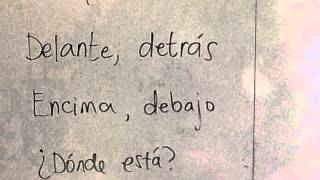 Delante, detrás
Encima, debajo
¿Dónde está?